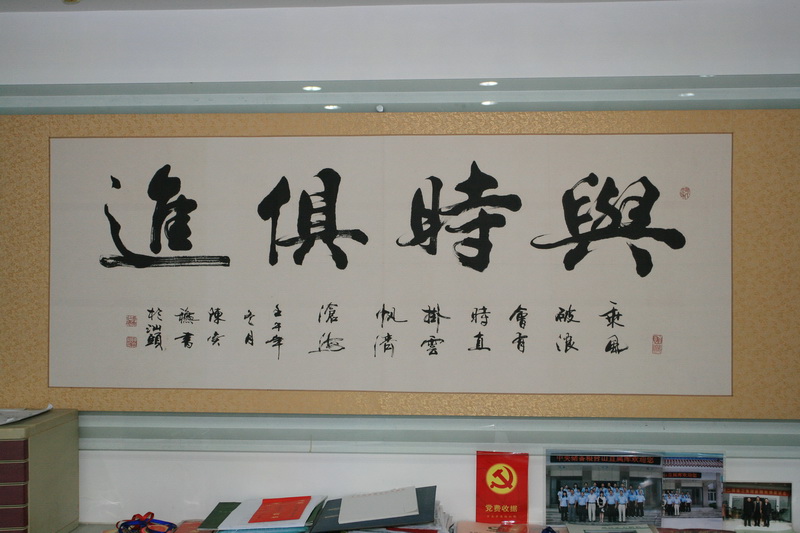 與時俱進
乘風
破浪
會有
時直
掛雲
帆濟
滄海
壬午年
冬月
陳奕
書
於汕頭
党费收据